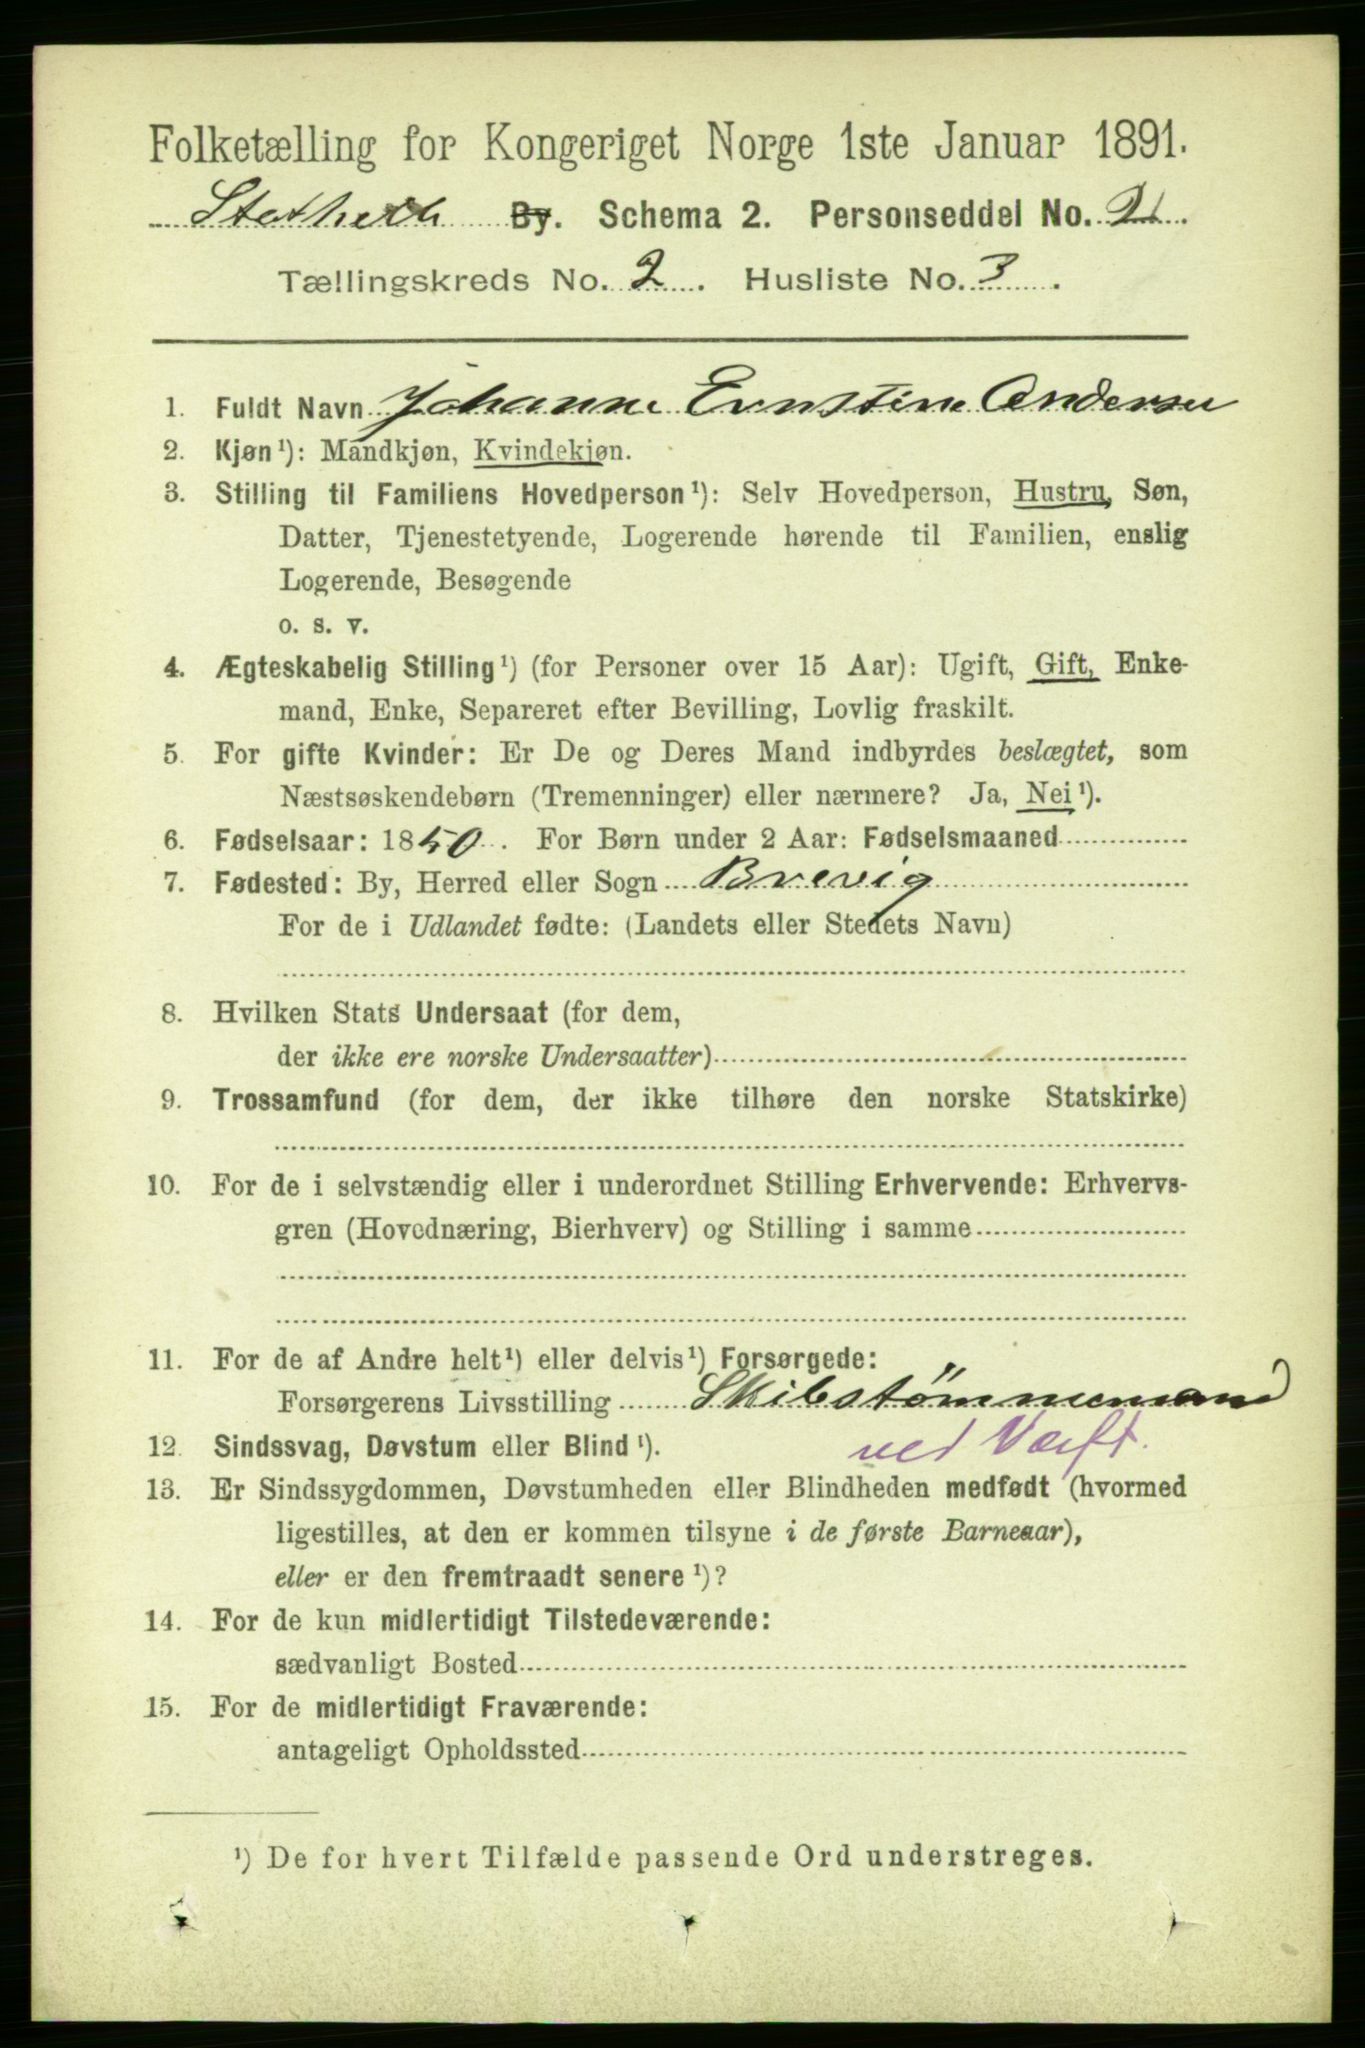 Folketælling for Kongeriget Norge 1ste Januar 1891.
Stathelle By. Schema 2. Personseddel No. 2.
Tællingskreds No. 2. Husliste No. 3.
1. Fuldt Navn Johanne Ernstine Andersen
2. Kjøn¹): Mandkjøn, Kvindekjøn.
3. Stilling til Familiens Hovedperson¹): Selv Hovedperson, Hustru, Søn,
Datter, Tjenestetyende, Logerende hørende til Familien, enslig
Logerende, Besøgende
o. s. v.
4. Ægteskabelig Stilling¹) (for Personer over 15 Aar): Ugift, Gift, Enke-
mand, Enke, Separeret efter Bevilling, Lovlig fraskilt.
5. For gifte Kvinder: Er De og Deres Mand indbyrdes beslægtet, som
Næstsøskendebørn (Tremenninger) eller nærmere? Ja, Nei¹).
6. Fødselsaar: 1850. For Børn under 2 Aar: Fødselsmaaned
7. Fødested: By, Herred eller Sogn Brevig
For de i Udlandet fødte: (Landets eller Stedets Navn)
8. Hvilken Stats Undersaat (for dem,
der ikke ere norske Undersaatter)
9. Trossamfund (for dem, der ikke tilhøre den norske Statskirke)
10. For de i selvstændig eller i underordnet Stilling Erhvervende: Erhvervs-
gren (Hovednæring, Bierhverv) og Stilling i samme
11. For de af Andre helt¹) eller delvis¹) Forsørgede:
Forsørgerens Livsstilling Skibstömmermand
ved Værft.
12. Sindssvag, Døvstum eller Blind¹).
13. Er Sindssygdommen, Døvstumheden eller Blindheden medfødt (hvormed
ligestilles, at den er kommen tilsyne i de første Barneaar),
eller er den fremtraadt senere¹)?
14. For de kun midlertidigt Tilstedeværende:
sædvanligt Bosted
15. For de midlertidigt Fraværende:
antageligt Opholdssted
¹) De for hvert Tilfælde passende Ord understreges.